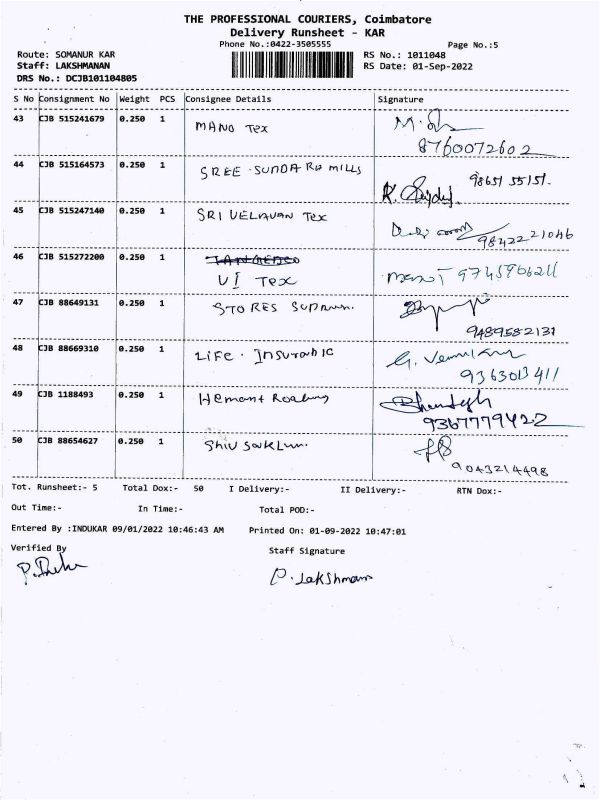 THE PROFESSIONAL COURIERS, Coimbatore
Delivery Runsheet - KAR
Phone No.:0422-3505555
Page No.:5
Route: SOMANUR KAR
RS No.: 1011048
Staff: LAKSHMANAN
RS Date: 01-Sep-2022
DRS No.: DCJB101104805
S No Consignment No Weight PCS Consignee Details Signature
43 CJB 515241679 0.250 1 MANO Tex
8760072602
44 CJB 515164573 0.250 1 SREE SUNDARA MILLS 98651 55151.
45 CJB 515247140 0.250 1 SRI VELAVAN Tex
98422 21046
46 CJB 515272200 0.250 1
VI Tex
47 CJB 88649131 0.250 1 STORES
9489582131
48 CJB 88669310 0.250 1 LIFE . Insuranic
9363013411
49 CJB 1188493 0.250 1 Hemant
9367779422
50 CJB 88654627 0.250 1 Shiv
9043214498
Tot. Runsheet:- 5 Total Dox:- 50 I Delivery:- II Delivery:- RTN Dox:-
Out Time:- In Time:- Total POD:-
Entered By :INDUKAR 09/01/2022 10:46:43 AM Printed On: 01-09-2022 10:47:01
Verified By Staff Signature
P. Lakshmanan